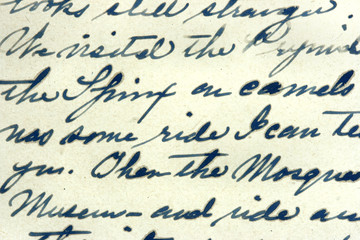 looks still stranger.
We visited the Pyramid
the Sphinx on camels
was some ride I can te
you. Then the Mosques
Museum - and ride